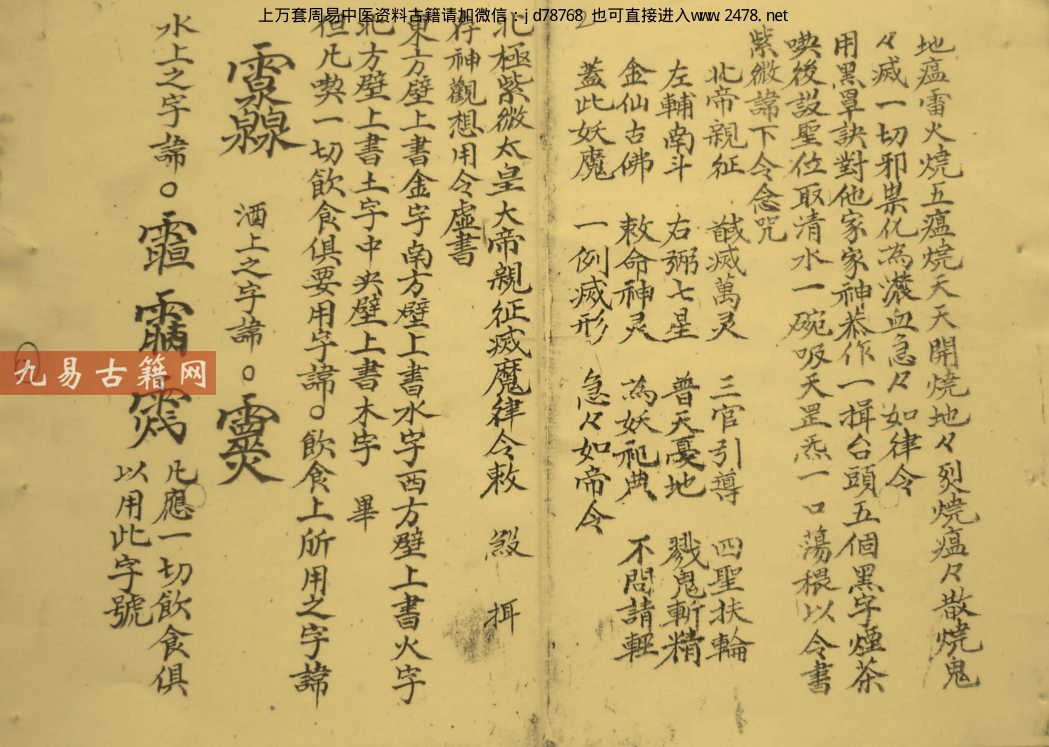 上万套周易中医资料古籍请加微信：jd78768 也可直接进入www.2478.net
地瘟雷火燒五瘟燒天天開燒地々裂燒瘟々散燒鬼
々滅一切邪祟化為濃血急々如律令
用黑罩訣對他家家神恭作一揖台頭五個黑字煙茶
喫後設聖位取清水一碗吸天罡炁一口蕩穢以令書
紫微諱下令念咒
北帝親征 馘滅萬灵 三官引導 四聖扶輪
左輔南斗 右弼七星 普天憂地 戮鬼斬精
金仙古佛 敕命神灵 為妖祀典 不問請輕
蓋此妖魔 一例滅形 急々如帝令
北極紫微太皇大帝親征滅魔律令敕 煞 揖
存神觀想用令虛書
東方壁上書金字南方壁上書水字西方壁上書火字
北方壁上書土字中央壁上書木字 畢
但凡喫一切飲食俱要用字諱。飲食上所用之字諱
酒上之字諱。
水上之字諱。
凡應一切飲食俱
以用此字號
九易古籍网